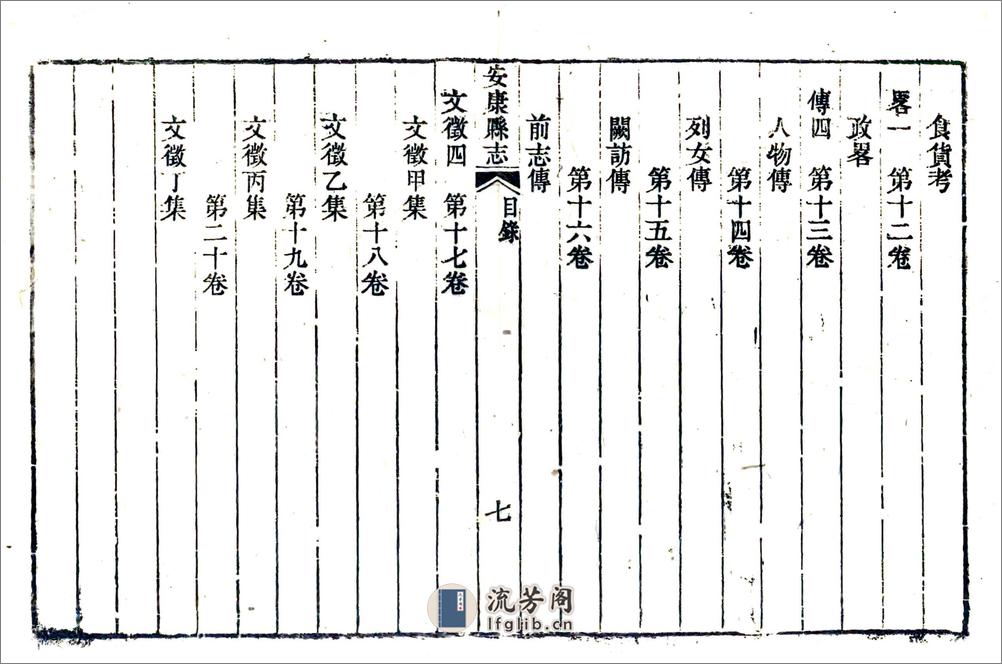 食貨考
畧一　第十二卷
政畧
傳四　第十三卷
人物傳
第十四卷
列女傳
第十五卷
闕訪傳
第十六卷
前志傳
安康縣志　目錄　七
文徵四　第十七卷
文徵甲集
第十八卷
文徵乙集
第十九卷
文徵丙集
第二十卷
文徵丁集
流芳阁
lfglib.cn